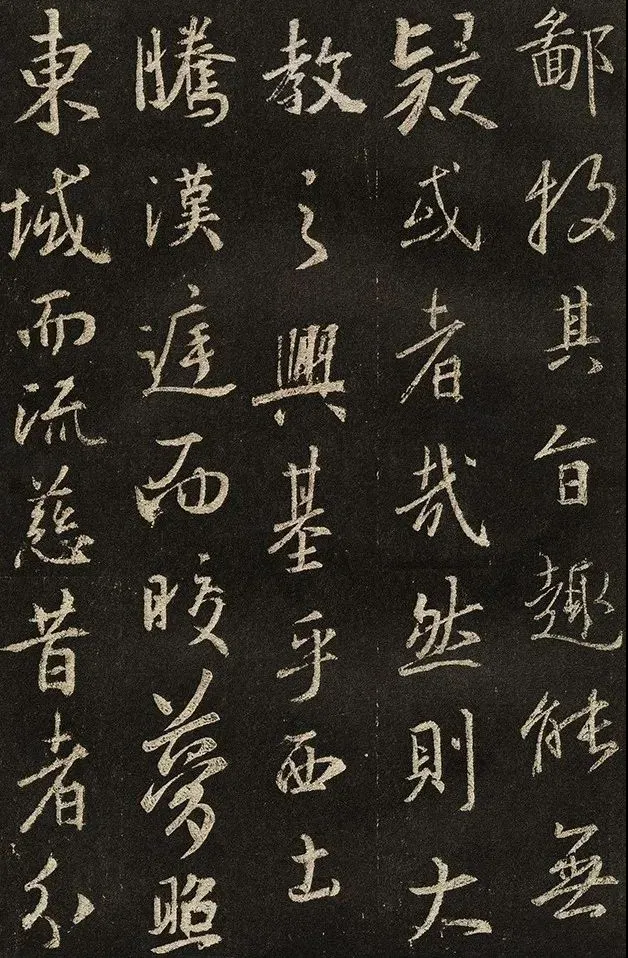 鄙投其旨趣能無
疑或者哉然則大
教之興基乎西土
騰漢庭而皎夢照
東域而流慈昔者分